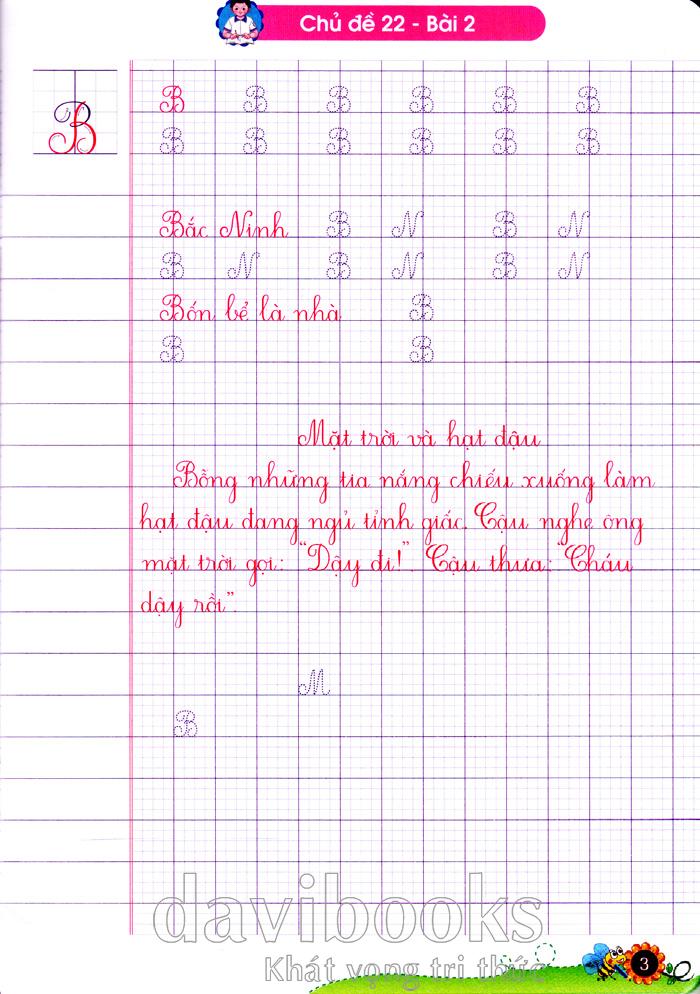 Chủ đề 22 - Bài 2
B B B B B B B
B B B B B B
Bắc Ninh B N B N
B N B N B N
Bốn bể là nhà B
B B
Mặt trời và hạt đậu
Bỗng những tia nắng chiếu xuống làm
hạt đậu đang ngủ tỉnh giấc. Cậu nghe ông
mặt trời gọi: “Dậy đi!”. Cậu thưa: “Cháu
dậy rồi”.
M
B
davibooks
Khát vọng tri thức
3